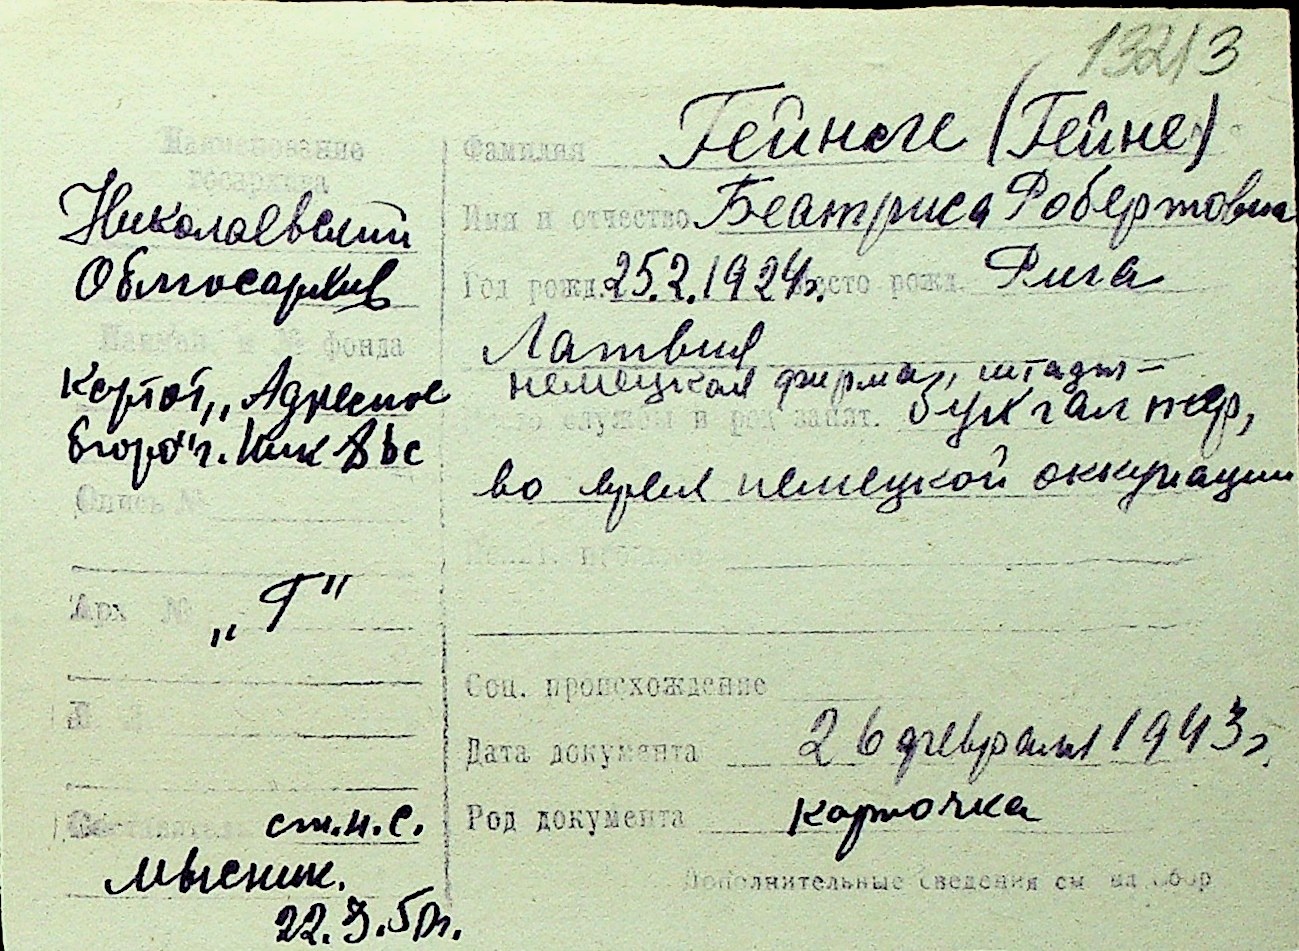 132/3
Наименование
госархива
Николаевский
Облгосархив
Наимен. и № фонда
Картот. „Адресное
бюро" г. Ник
Опись №
Арх №
„Г"
Л.
Составитель ст.н.с.
Мысник.
22.3.50г.
Фамилия Гейнеге (Гейне)
Имя и отчество Беатриса Робертовна
Год рожд. 25.2.1924г. место рожд. Рига
Латвия
немецкая фирма,
службы и род занят. бухгалтер,
во время немецкой оккупации
Соц. происхождение
Дата документа 26 февраля 1943г.
Род документа карточка
Дополнительные сведения см на обор